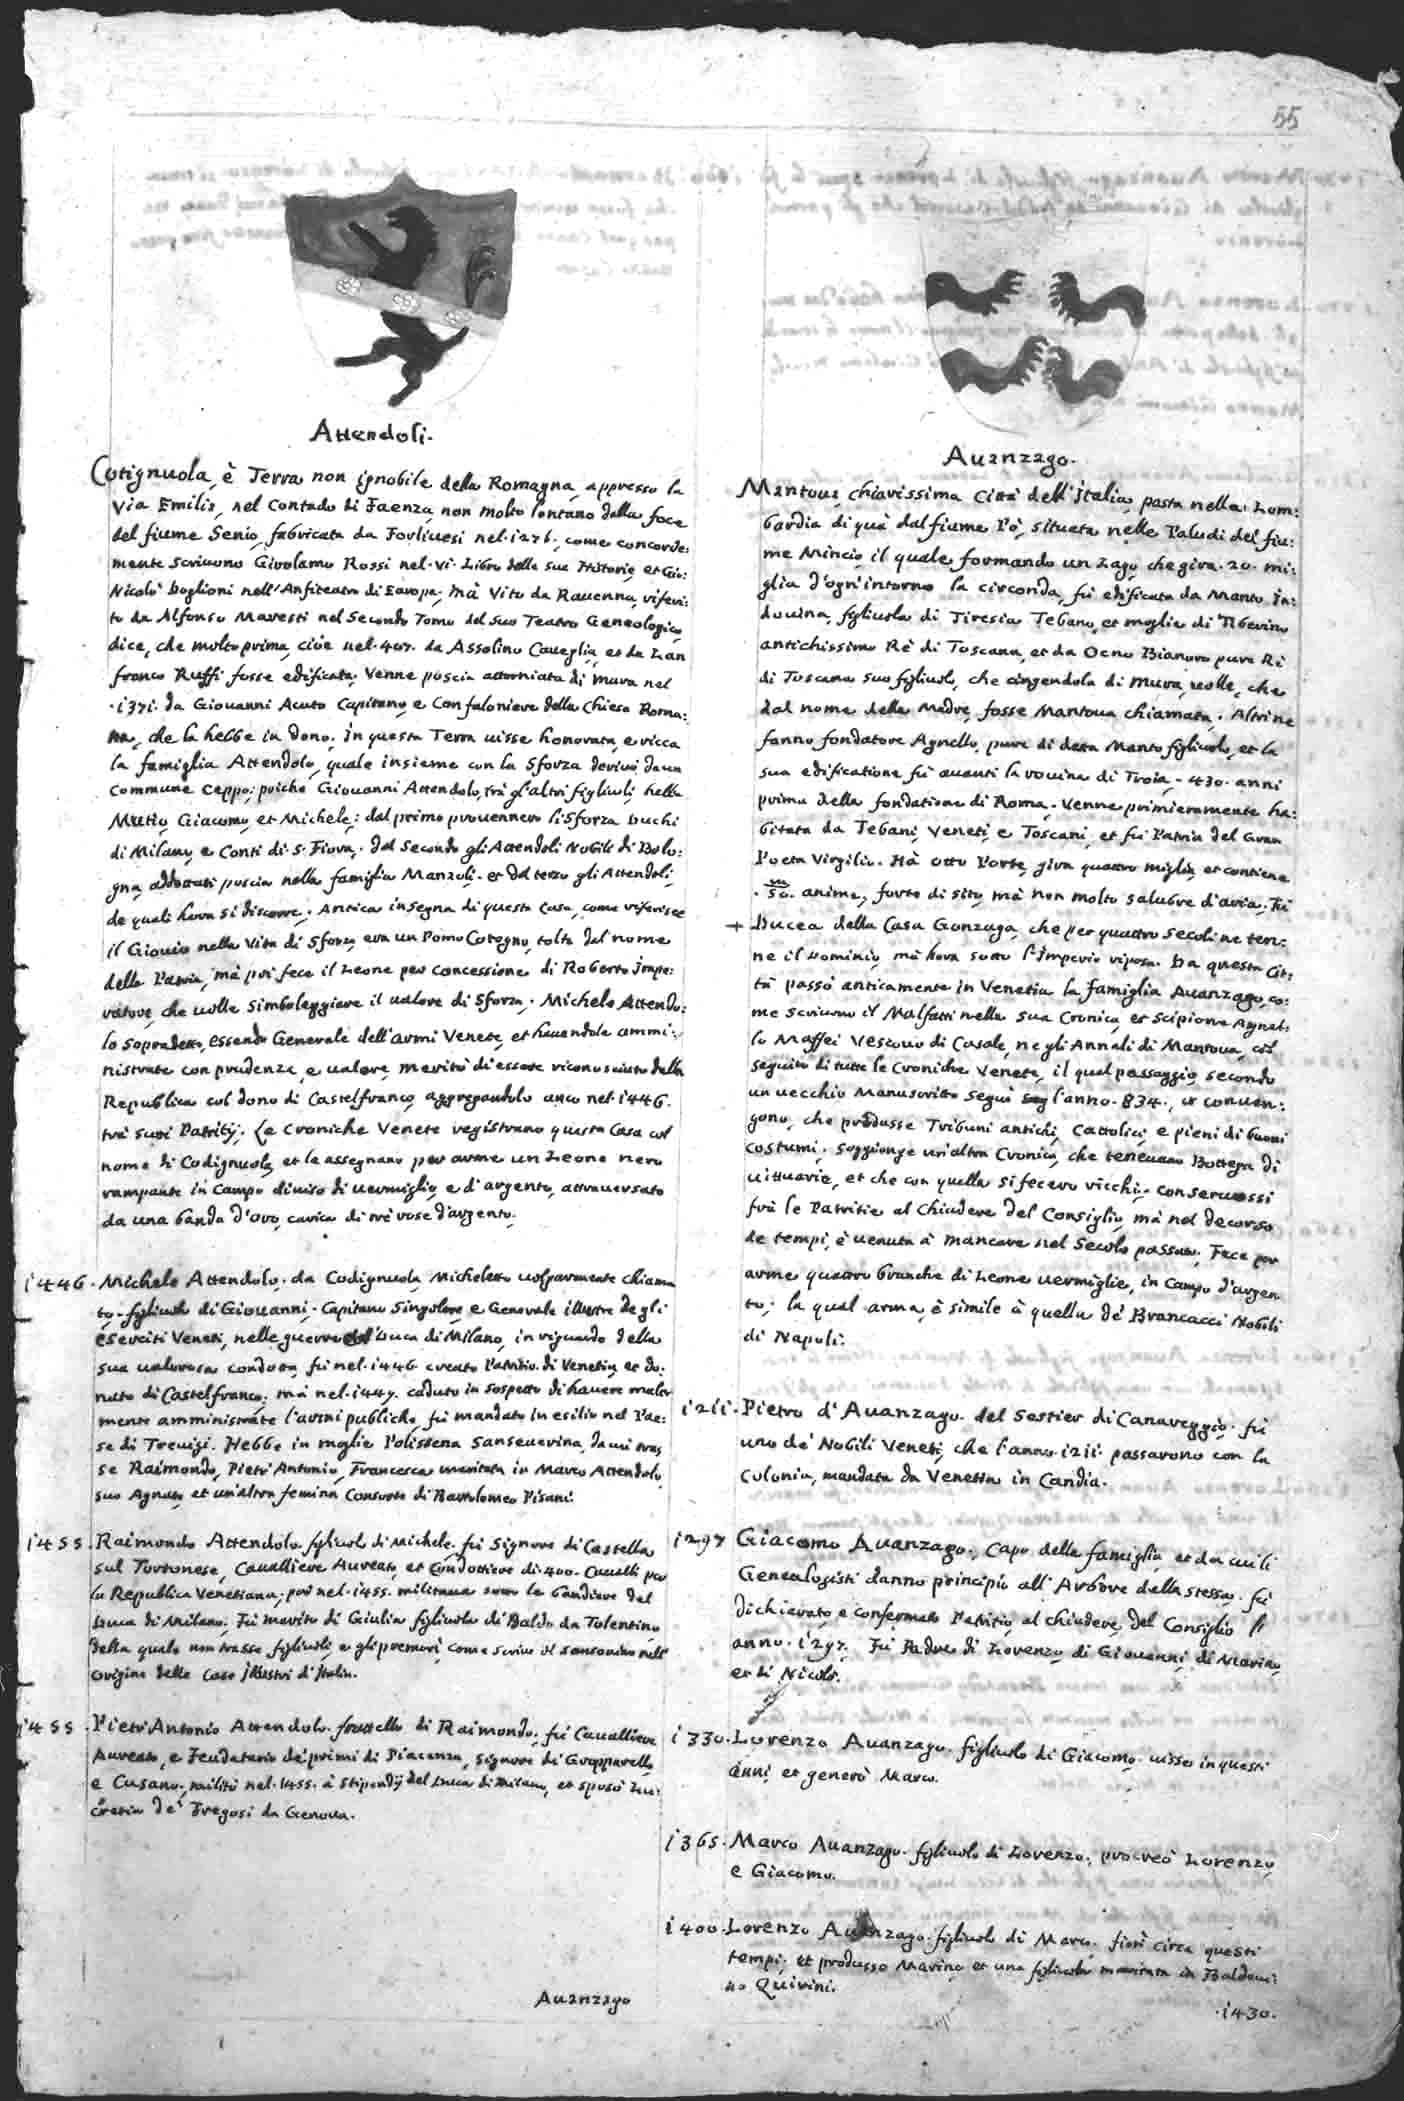 55
Attendoli.
Cotignuola, è Terra non ignobile della Romagna, appresso la
Via Emilia, nel Contado di Faenza, non molto lontano dalla foce
del fiume Senio, fabricata da Forliuesi nel. 1276. come concorde:
mente scriuono Girolamo Rossi nel. vi. Libro delle sue Historie, et Gio:
Nicolò Doglioni nell'Anfiteatro di Europa; mà Vito da Rauenna, riferi:
to da Alfonso Maresti nel Secondo Tomo del suo Teatro Geneologico,
dice, che molto prima, cioè nel. 407. da Assolino Caueglia, et da Lan
franco Ruffi fosse edificata. Venne poscia attorniata di mura nel
.1371. da Giouanni Acuto Capitano, e Confaloniere della Chiesa Roma:
na, che la hebbe in dono. In questa Terra uisse honorata, e ricca
la famiglia Attendolo, quale insieme con la Sforza deriuò da un
commune ceppo; poiche Giouanni Attendolo, trà gl'altri figliuoli, hebbe
Mutio, Giacomo, et Michele: dal primo prouennero li Sforza Duchi
di Milano, e Conti di S. Fiora; dal secondo gli Attendoli Nobili di Bolo:
gna, addottati poscia nella famiglia Manzoli; et dal terzo gli Attendoli,
de quali hora si discorre. Antica insegna di questa Casa, come riferisce
il Giouio nella Vita di Sforza, era un Pomo Cotogno, tolto dal nome
della Patria, mà poi fece il Leone per concessione di Roberto Impe:
ratore, che uolle simboleggiare il ualore di Sforza. Michele Attendo:
lo sopradetto, essendo Generale dell'armi Venete, et hauendole ammi:
nistrate con prudenza, e ualore, meritò di essere riconosciuto dalla
Republica col dono di Castelfranco, aggregandolo anco nel. 1446.
trà suoi Patritij. Le Croniche Venete registrano questa Casa col
nome di Codignuola, et le assegnano per arme un Leone nero
rampante in Campo diuiso di uermiglio, e d'argento, attrauersato
da una banda d'oro, carica di trè rose d'argento.
1446. Michele Attendolo. da Codignuola, Micheletto uolgarmente chiama
to. figliuolo di Giouanni. Capitano Singolare, e Generale illustre degli
eserciti Veneti, nelle guerre del Duca di Milano, in riguardo della
sua ualorosa condotta, fù nel. 1446. creato Patritio di Venetia, et do:
nato di Castelfranco; mà nel. 1447. caduto in sospetto di hauere mala
mente amministrate l'armi publiche, fù mandato in esilio nel Pae:
se di Treuigi. Hebbe in moglie Polissena Sanseuerina, da cui tras
se Raimondo, Pietr'Antonio, Francesca maritata in Marco Attendolo
suo Agnato, et un'altra femina Consorte di Bartolomeo Pisani.
1455. Raimondo Attendolo. figliuolo di Michele. fù Signore di Castella
sul Tortonese, Caualliere Aureato, et Condottiere di. 400. Caualli per
la Republica Venetiana; poi nel. 1455. militaua sotto le bandiere del
Duca di Milano. Fù marito di Giulia figliuola di Baldo da Tolentino
della quale non trasse figliuoli, e gli premorì, come scriue il Sansouino nell'
origine delle Case Illustri d'Italia.
1455. Pietr'Antonio Attendolo. fratello di Raimondo. fù Caualliere
Aureato, e Feudatario de' primi di Piacenza, Signore di Gropparello,
e Cusano; militò nel. 1455. à stipendij del Duca di Milano, et sposò Lu:
cretia de' Fregosi da Genoua.
Auanzago
Auanzago.
Mantoua chiarissima Città dell'Italia, posta nella Lom:
bardia di quà dal fiume Pò, situata nelle Paludi del fiu:
me Mincio, il quale formando un Lago, che gira. 20. mi:
glia d'ogn'intorno la circonda, fù edificata da Manto In:
douina, figliuola di Tiresia Tebano, et moglie di Tiberino
antichissimo Rè di Toscana, et da Ocno Bianoro pure Rè
di Toscana suo figliuolo, che cingendola di mura, uolle, che
dal nome della Madre, fosse Mantoua chiamata. Altri ne
fanno fondatore Agnello, pure di detta Manto figliuolo, et la
sua edificatione fù auanti la rouina di Troia. 430. anni
prima della fondatione di Roma. Venne primieramente ha:
bitata da Tebani, Veneti, e Toscani, et fù Patria del Gran
Poeta Virgilio. Hà otto Porte, gira quattro miglia, et contiene
. 50. m anime, forte di sito, mà non molto salubre d'aria. Fù
+ Ducea della Casa Gonzaga, che per quattro secoli ne ten:
ne il Dominio, mà hora sotto l'Imperio riposa. Da questa Cit:
tà passò anticamente in Venetia la famiglia Auanzago, co:
me scriuono il Malfatti nella sua Cronica, et Scipione Agnel:
lo Maffei Vescouo di Casale, negli Annali di Mantoua, col
seguito di tutte le Croniche Venete, il qual passaggio, secondo
un uecchio Manuscritto seguì l'anno. 834., et conuen:
gono, che produsse Tribuni antichi, Cattolici, e pieni di buoni
costumi. Soggionge un'altra Cronica, che teneuano Bottega di
uittuarie, et che con quella si fecero ricchi. Conseruossi
frà le Patritie al chiudere del Consiglio, mà nel decorso
de tempi, è uenuta à mancare nel Secolo passato. Fece per
arme quattro branche di Leone uermiglie, in Campo d'argen
to; la qual arma, è simile à quella de' Brancacci Nobili
di Napoli.
1211. Pietro d'Auanzago. del Sestier di Canareggio. fù
uno de' Nobili Veneti, che l'anno. 1211. passarono con la
Colonia, mandata da Venetia in Candia.
1297 Giacomo Auanzago. Capo della famiglia, et da cui li
Genealogisti danno principio all'Arbore della stessa. fù
dichiarato, e confermato Patritio, al chiudere del Consiglio l'
anno. 1297. Fù Padre di Lorenzo, di Giouanni, di Marino,
et di Nicolò.
1330. Lorenzo Auanzago. figliuolo di Giacomo. uisse in questi
anni, et generò Marco.
1365. Marco Auanzago. figliuolo di Lorenzo. procreò Lorenzo,
e Giacomo.
1400. Lorenzo Auanzago. figliuolo di Marco. fiorì circa questi
tempi, et produsse Marino, et una figliuola maritata in Baldoui:
no Quirini.
.1430.